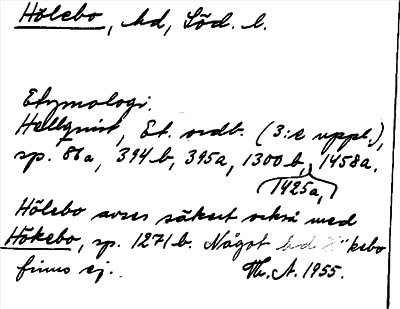 Hölebo, hd, Söd. l.
Etymologi.
Hellquist, Et. ordb. (3:e uppl.),
sp. 86a, 394b, 395a, 1300b, 1458a.
1425a,
Hölebo avses säkert också med
Hökebo, sp. 1271b. Något hd kebo
finns ej. Th. A. 1955.